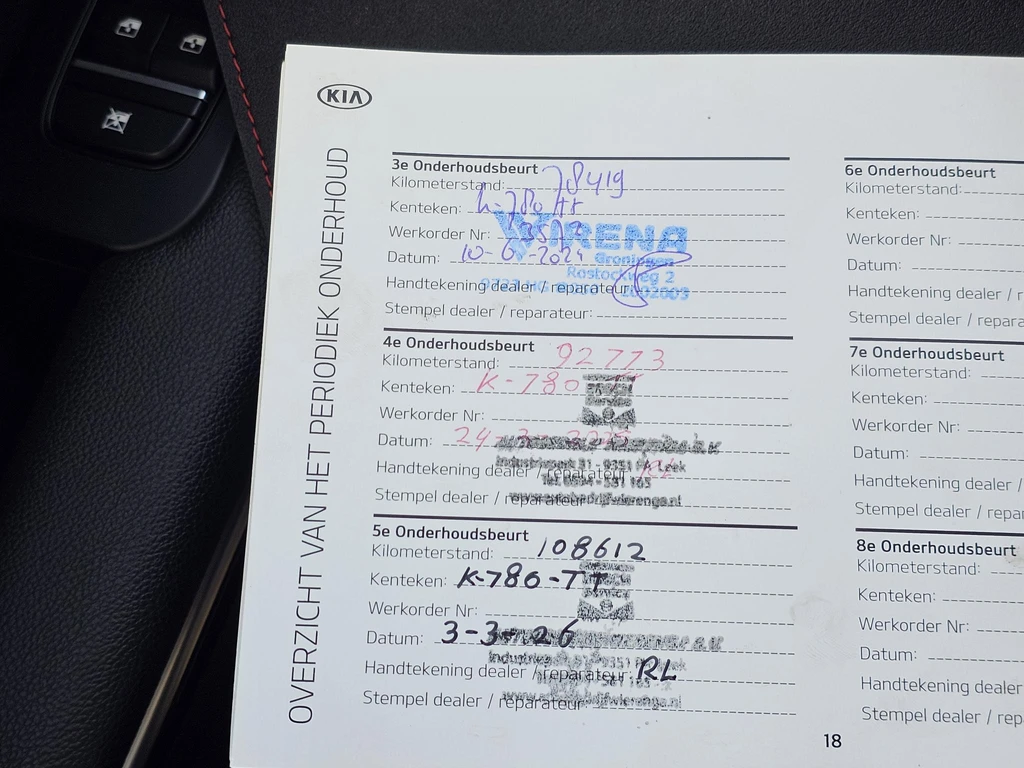 KIA
OVERZICHT VAN HET PERIODIEK ONDERHOUD
3e Onderhoudsbeurt
Kilometerstand: 78419
Kenteken:
Werkorder Nr:
WIRENA
Datum: 2024
Groningen
Rostockweg 2
Handtekening dealer / reparateur:
Stempel dealer / reparateur:
4e Onderhoudsbeurt
Kilometerstand: 92773
Kenteken: K-780
Werkorder Nr:
Datum: 24-3-2025
Industriepark 31 - 9351 PA Leek
Handtekening dealer / reparateur:
Tel. 0594 - 581 165
Stempel dealer / reparateur:
www.autobedrijfwierenga.nl
5e Onderhoudsbeurt
Kilometerstand: 108612
Kenteken: K-780-TT
Werkorder Nr:
Datum: 3-3-26
9351 Leek
Handtekening dealer / reparateur: RL
Stempel dealer / reparateur:
6e Onderhoudsbeurt
Kilometerstand:
Kenteken:
Werkorder Nr:
Datum:
Handtekening dealer / r
Stempel dealer / repara
7e Onderhoudsbeurt
Kilometerstand:
Kenteken:
Werkorder Nr:
Datum:
Handtekening dealer /
Stempel dealer / repar
8e Onderhoudsbeurt
Kilometerstand:
Kenteken:
Werkorder Nr:
Datum:
Handtekening dealer
Stempel dealer / rep
18